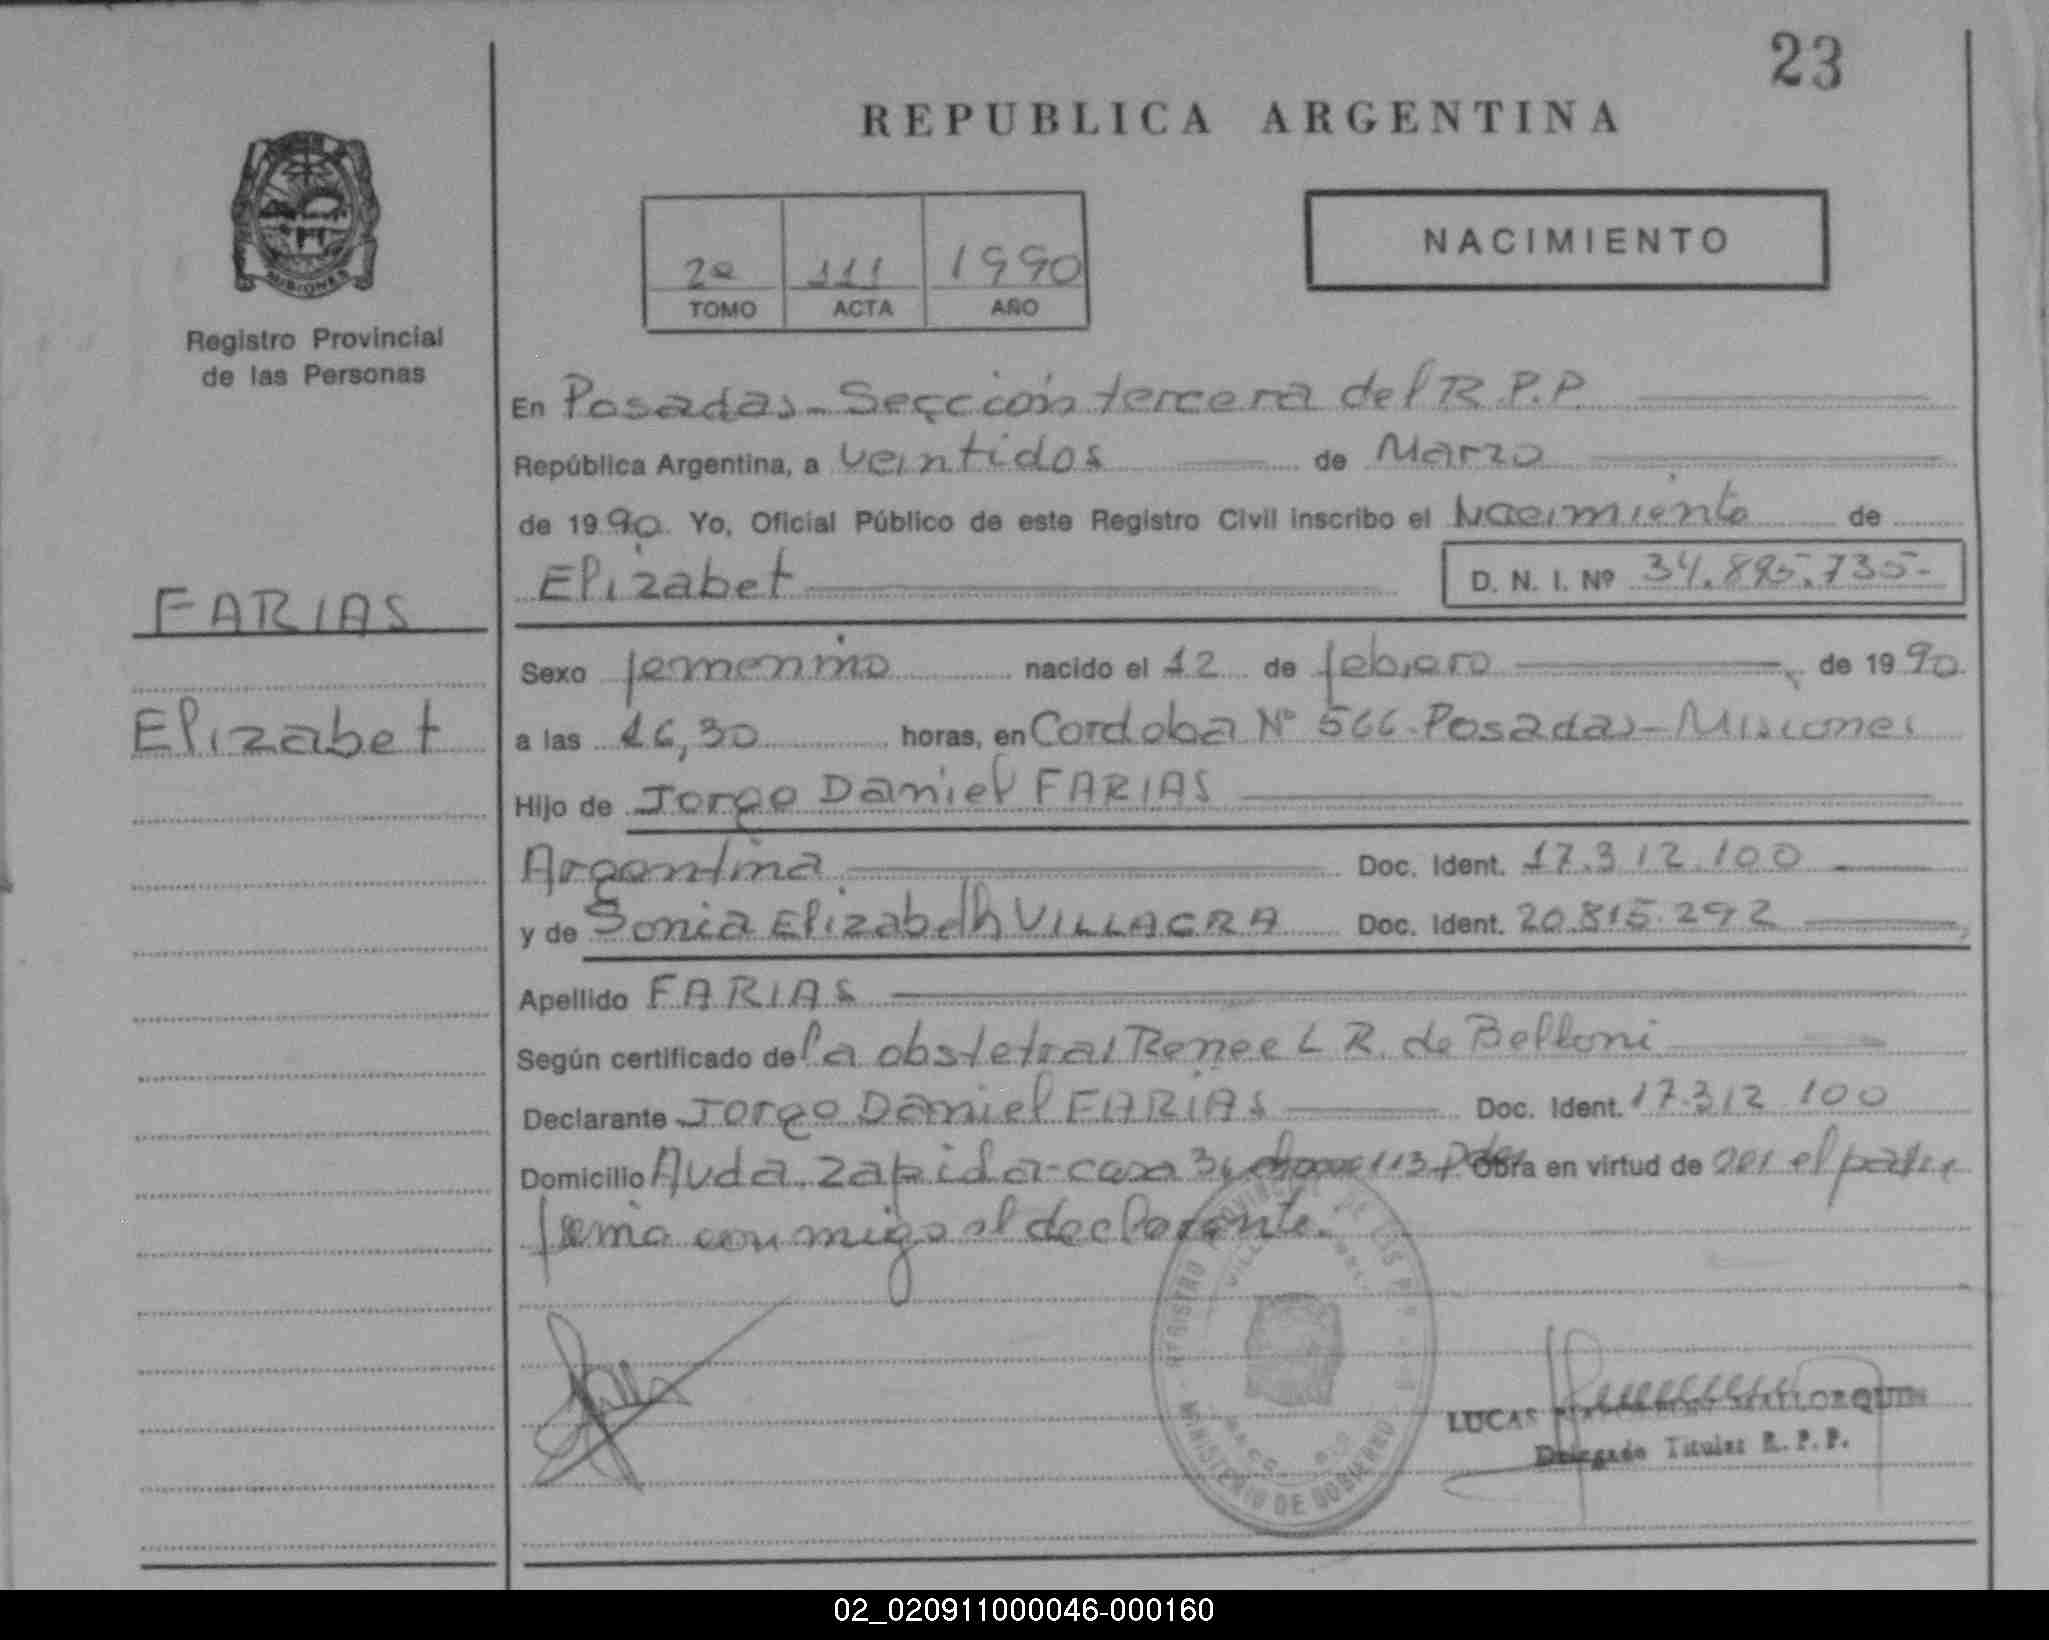 23
REPUBLICA ARGENTINA
MISIONES
Registro Provincial
de las Personas
2º 111 1990
TOMO ACTA AÑO
NACIMIENTO
En Posadas - Sección tercera del R.P.P.
República Argentina, a veintidos de Marzo
de 1990. Yo, Oficial Público de este Registro Civil inscribo el Nacimiento de
Elizabet D. N. I. Nº 34.895.735-
FARIAS
Elizabet
Sexo femenino nacido el 12 de febrero de 1990.
a las 16,30 horas, en Cordoba Nº 566 - Posadas - Misiones
Hijo de Jorge Daniel FARIAS
Argentina Doc. Ident. 17.312.100
y de Sonia Elizabeth VILLAGRA Doc. Ident. 20.815.292
Apellido FARIAS
Según certificado de la obstetra Renee L R. de Belloni
Declarante Jorge Daniel FARIAS Doc. Ident. 17.312.100
Domicilio Avda. Zapiola - casa 34 113 - Obra en virtud de ser el padre
firma conmigo el declarante.
MINISTERIO DE GOBIERNO
LUCAS
Delegado Titular R. P. P.
02_020911000046-000160